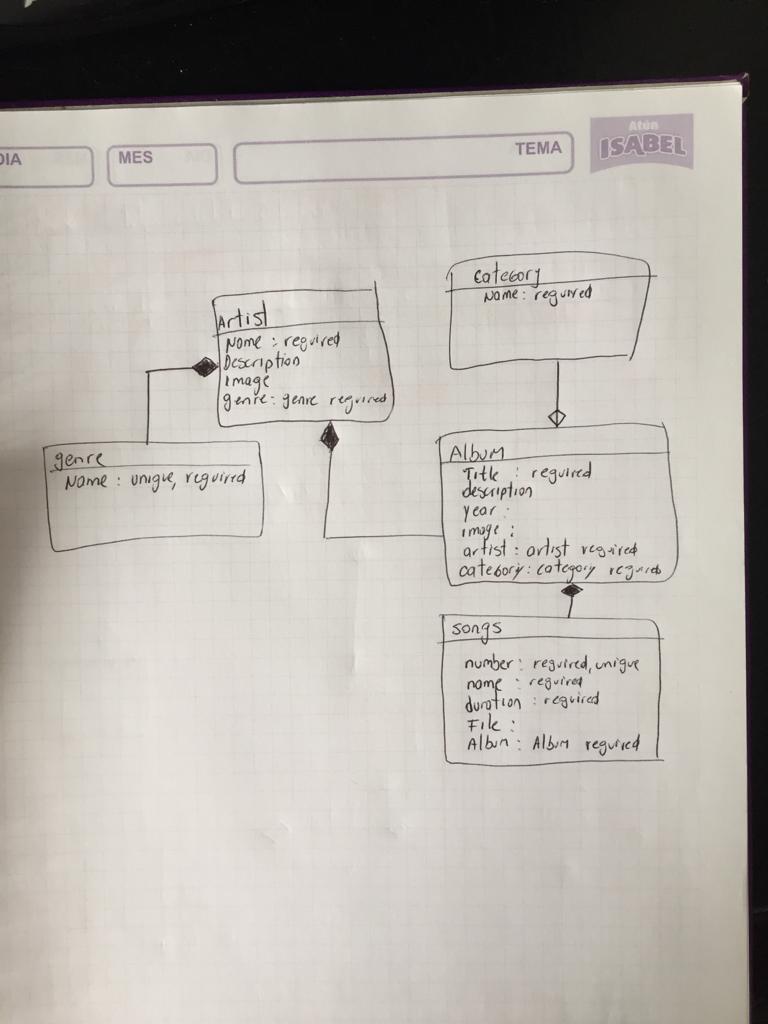 DIA
MES
TEMA
Atún
ISABEL
Category
Name : required
Artist
Name : required
Description
image
genre : genre required
genre
Name : unique, required
Album
Title : required
description
year :
image :
artist : artist required
category : category required
songs
number : required, unique
name : required
duration : required
File :
Album : Album required